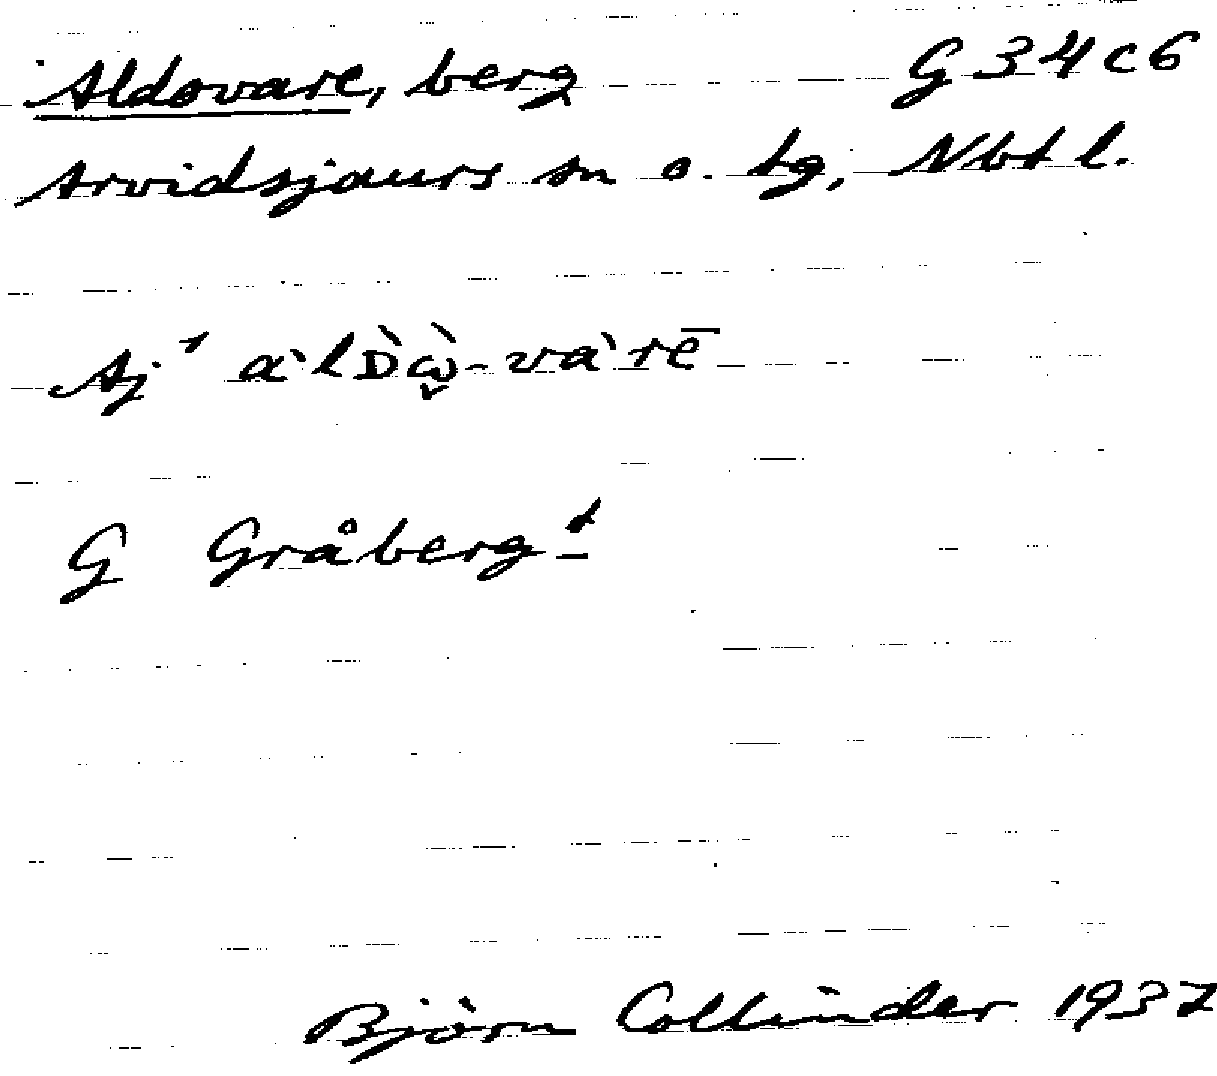 Aldovare, berg G 34 c 6
Arvidsjaurs sn o. tg, Nbt l.
Aj¹ àlD̀ὼ̬-và rē
G Gråberg t
Björn Collinder 1937